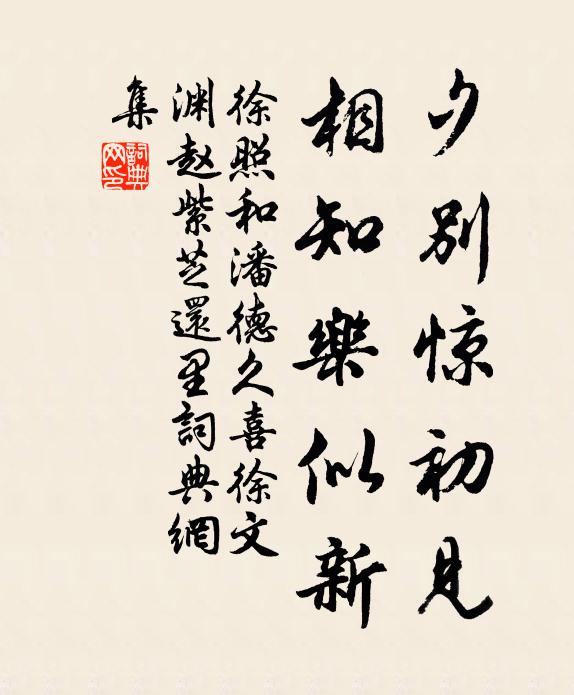 夕别惊初见
相知樂似新
徐照和潘德久喜徐文
渊赵紫芝還里詞典網
集
詞典網印